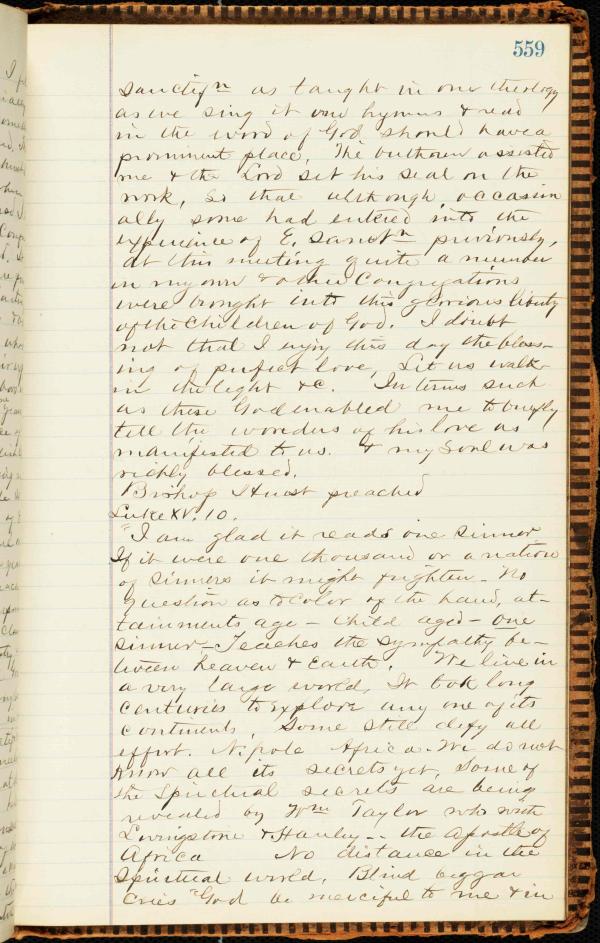 559
Sanctifn as taught in our theology
as we sing it our hymns & read
in the word of God should have a
prominent place. The brethren assisted
me & the Lord set his seal on the
work, So that although occasion
ally some had entered into the
experience of E. Sanctn previously,
at this meeting quite a number
in my own & other Congregations
were brought into this glorious liberty
of the Children of God. I doubt
not that I enjoy this day the bless-
ing of perfect love, Let us walk
in the light &c. In terms such
as these God enabled me to briefly
tell the wonders of his love as
manifested to us. & my soul was
richly blessed.
Bishop Hurst preached
Luke XV. 10.
"I am glad it reads one sinner
If it were one thousand or a nation
of sinners it might frighten - No
question as to color of the hand, at-
tainments age - child aged - one
sinner - Teaches the sympathy be-
tween heaven & earth. We live in
a very large world, It took long
centuries to explore any one of its
continents, Some still defy all
effort. N. pole Africa. We do not
know all its secrets yet, Some of
the Spiritual secrets are being
revealed by Wm Taylor who with
Livingstone & Stanley -- the apostle of
Africa No distance in the
Spiritual world, Blind beggar
cries "God be merciful to me & in